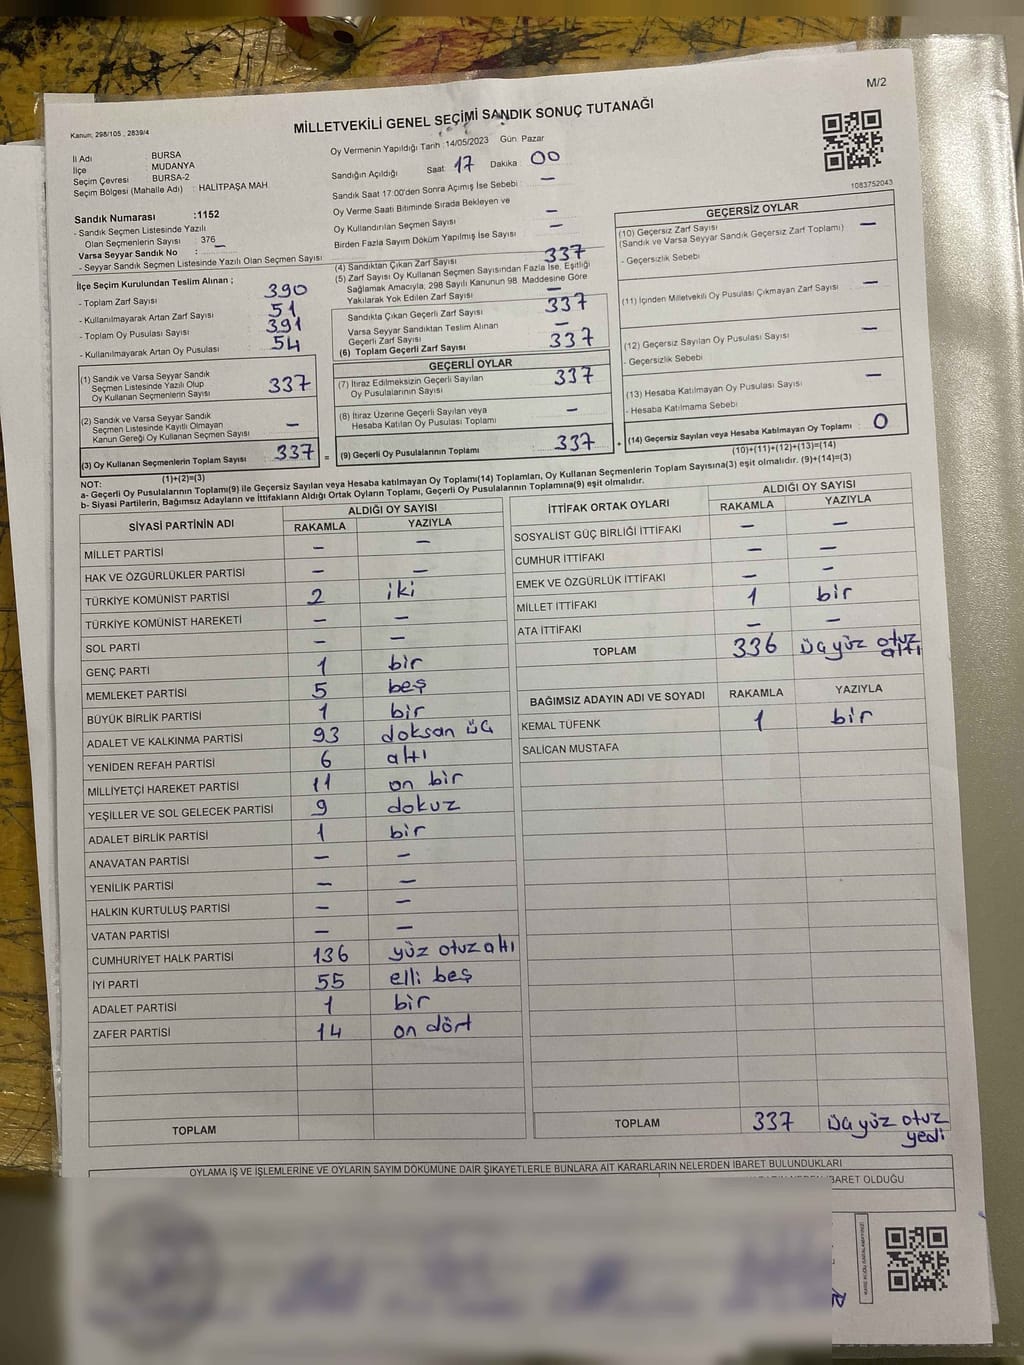 M/2
Kanun: 298/105 , 2839/4
MİLLETVEKİLİ GENEL SEÇİMİ SANDIK SONUÇ TUTANAĞI
1083752043
İl Adı : BURSA
İlçe : MUDANYA
Seçim Çevresi : BURSA-2
Seçim Bölgesi (Mahalle Adı) : HALİTPAŞA MAH
Sandık Numarası :1152
- Sandık Seçmen Listesinde Yazılı
Olan Seçmenlerin Sayısı : 376
Varsa Seyyar Sandık No : –
- Seyyar Sandık Seçmen Listesinde Yazılı Olan Seçmen Sayısı
Oy Vermenin Yapıldığı Tarih :14/05/2023 Gün: Pazar
Sandığın Açıldığı Saat: 17 Dakika 00
Sandık Saat 17:00'den Sonra Açılmış İse Sebebi : –
Oy Verme Saati Bitiminde Sırada Bekleyen ve
Oy Kullandırılan Seçmen Sayısı –
Birden Fazla Sayım Döküm Yapılmış İse Sayısı –
İlçe Seçim Kurulundan Teslim Alınan ;
- Toplam Zarf Sayısı 390
- Kullanılmayarak Artan Zarf Sayısı 51
- Toplam Oy Pusulası Sayısı 391
- Kullanılmayarak Artan Oy Pusulası 54
(1) Sandık ve Varsa Seyyar Sandık
Seçmen Listesinde Yazılı Olup
Oy Kullanan Seçmenlerin Sayısı 337
(2) Sandık ve Varsa Seyyar Sandık
Seçmen Listesinde Kayıtlı Olmayan
Kanun Gereği Oy Kullanan Seçmen Sayısı –
(3) Oy Kullanan Seçmenlerin Toplam Sayısı 337
(1)+(2)=(3)
(4) Sandıktan Çıkan Zarf Sayısı 337
(5) Zarf Sayısı Oy Kullanan Seçmen Sayısından Fazla İse, Eşitliği
Sağlamak Amacıyla, 298 Sayılı Kanunun 98. Maddesine Göre
Yakılarak Yok Edilen Zarf Sayısı –
Sandıkta Çıkan Geçerli Zarf Sayısı 337
Varsa Seyyar Sandıktan Teslim Alınan
Geçerli Zarf Sayısı –
(6) Toplam Geçerli Zarf Sayısı 337
GEÇERLİ OYLAR
(7) İtiraz Edilmeksizin Geçerli Sayılan
Oy Pusulalarının Sayısı 337
(8) İtiraz Üzerine Geçerli Sayılan veya
Hesaba Katılan Oy Pusulası Toplamı –
= (9) Geçerli Oy Pusulalarının Toplamı 337
GEÇERSİZ OYLAR
(10) Geçersiz Zarf Sayısı –
(Sandık ve Varsa Seyyar Sandık Geçersiz Zarf Toplamı)
- Geçersizlik Sebebi
(11) İçinden Milletvekili Oy Pusulası Çıkmayan Zarf Sayısı –
(12) Geçersiz Sayılan Oy Pusulası Sayısı –
- Geçersizlik Sebebi
(13) Hesaba Katılmayan Oy Pusulası Sayısı –
- Hesaba Katılmama Sebebi
+ (14) Geçersiz Sayılan veya Hesaba Katılmayan Oy Toplamı 0
(10)+(11)+(12)+(13)=(14)
NOT:
a- Geçerli Oy Pusulalarının Toplamı(9) ile Geçersiz Sayılan veya Hesaba katılmayan Oy Toplamı(14) Toplamları, Oy Kullanan Seçmenlerin Toplam Sayısına(3) eşit olmalıdır. (9)+(14)=(3)
b- Siyasi Partilerin, Bağımsız Adayların ve İttifakların Aldığı Ortak Oyların Toplamı, Geçerli Oy Pusulalarının Toplamına(9) eşit olmalıdır.
SİYASİ PARTİNİN ADI ALDIĞI OY SAYISI
RAKAMLA YAZIYLA
MİLLET PARTİSİ – –
HAK VE ÖZGÜRLÜKLER PARTİSİ – –
TÜRKİYE KOMÜNİST PARTİSİ 2 iki
TÜRKİYE KOMÜNİST HAREKETİ – –
SOL PARTİ – –
GENÇ PARTİ 1 bir
MEMLEKET PARTİSİ 5 beş
BÜYÜK BİRLİK PARTİSİ 1 bir
ADALET VE KALKINMA PARTİSİ 93 doksan üç
YENİDEN REFAH PARTİSİ 6 altı
MİLLİYETÇİ HAREKET PARTİSİ 11 on bir
YEŞİLLER VE SOL GELECEK PARTİSİ 9 dokuz
ADALET BİRLİK PARTİSİ 1 bir
ANAVATAN PARTİSİ – –
YENİLİK PARTİSİ – –
HALKIN KURTULUŞ PARTİSİ – –
VATAN PARTİSİ – –
CUMHURİYET HALK PARTİSİ 136 yüz otuz altı
İYİ PARTİ 55 elli beş
ADALET PARTİSİ 1 bir
ZAFER PARTİSİ 14 on dört
TOPLAM
İTTİFAK ORTAK OYLARI ALDIĞI OY SAYISI
RAKAMLA YAZIYLA
SOSYALİST GÜÇ BİRLİĞİ İTTİFAKI – –
CUMHUR İTTİFAKI – –
EMEK VE ÖZGÜRLÜK İTTİFAKI – –
MİLLET İTTİFAKI 1 bir
ATA İTTİFAKI – –
TOPLAM 336 üç yüz otuz altı
BAĞIMSIZ ADAYIN ADI VE SOYADI RAKAMLA YAZIYLA
KEMAL TÜFENK 1 bir
SALİCAN MUSTAFA
TOPLAM 337 üç yüz otuz yedi
OYLAMA İŞ VE İŞLEMLERİNE VE OYLARIN SAYIM DÖKÜMÜNE DAİR ŞİKAYETLERLE BUNLARA AİT KARARLARIN NELERDEN İBARET BULUNDUKLARI
İBARET OLDUĞU